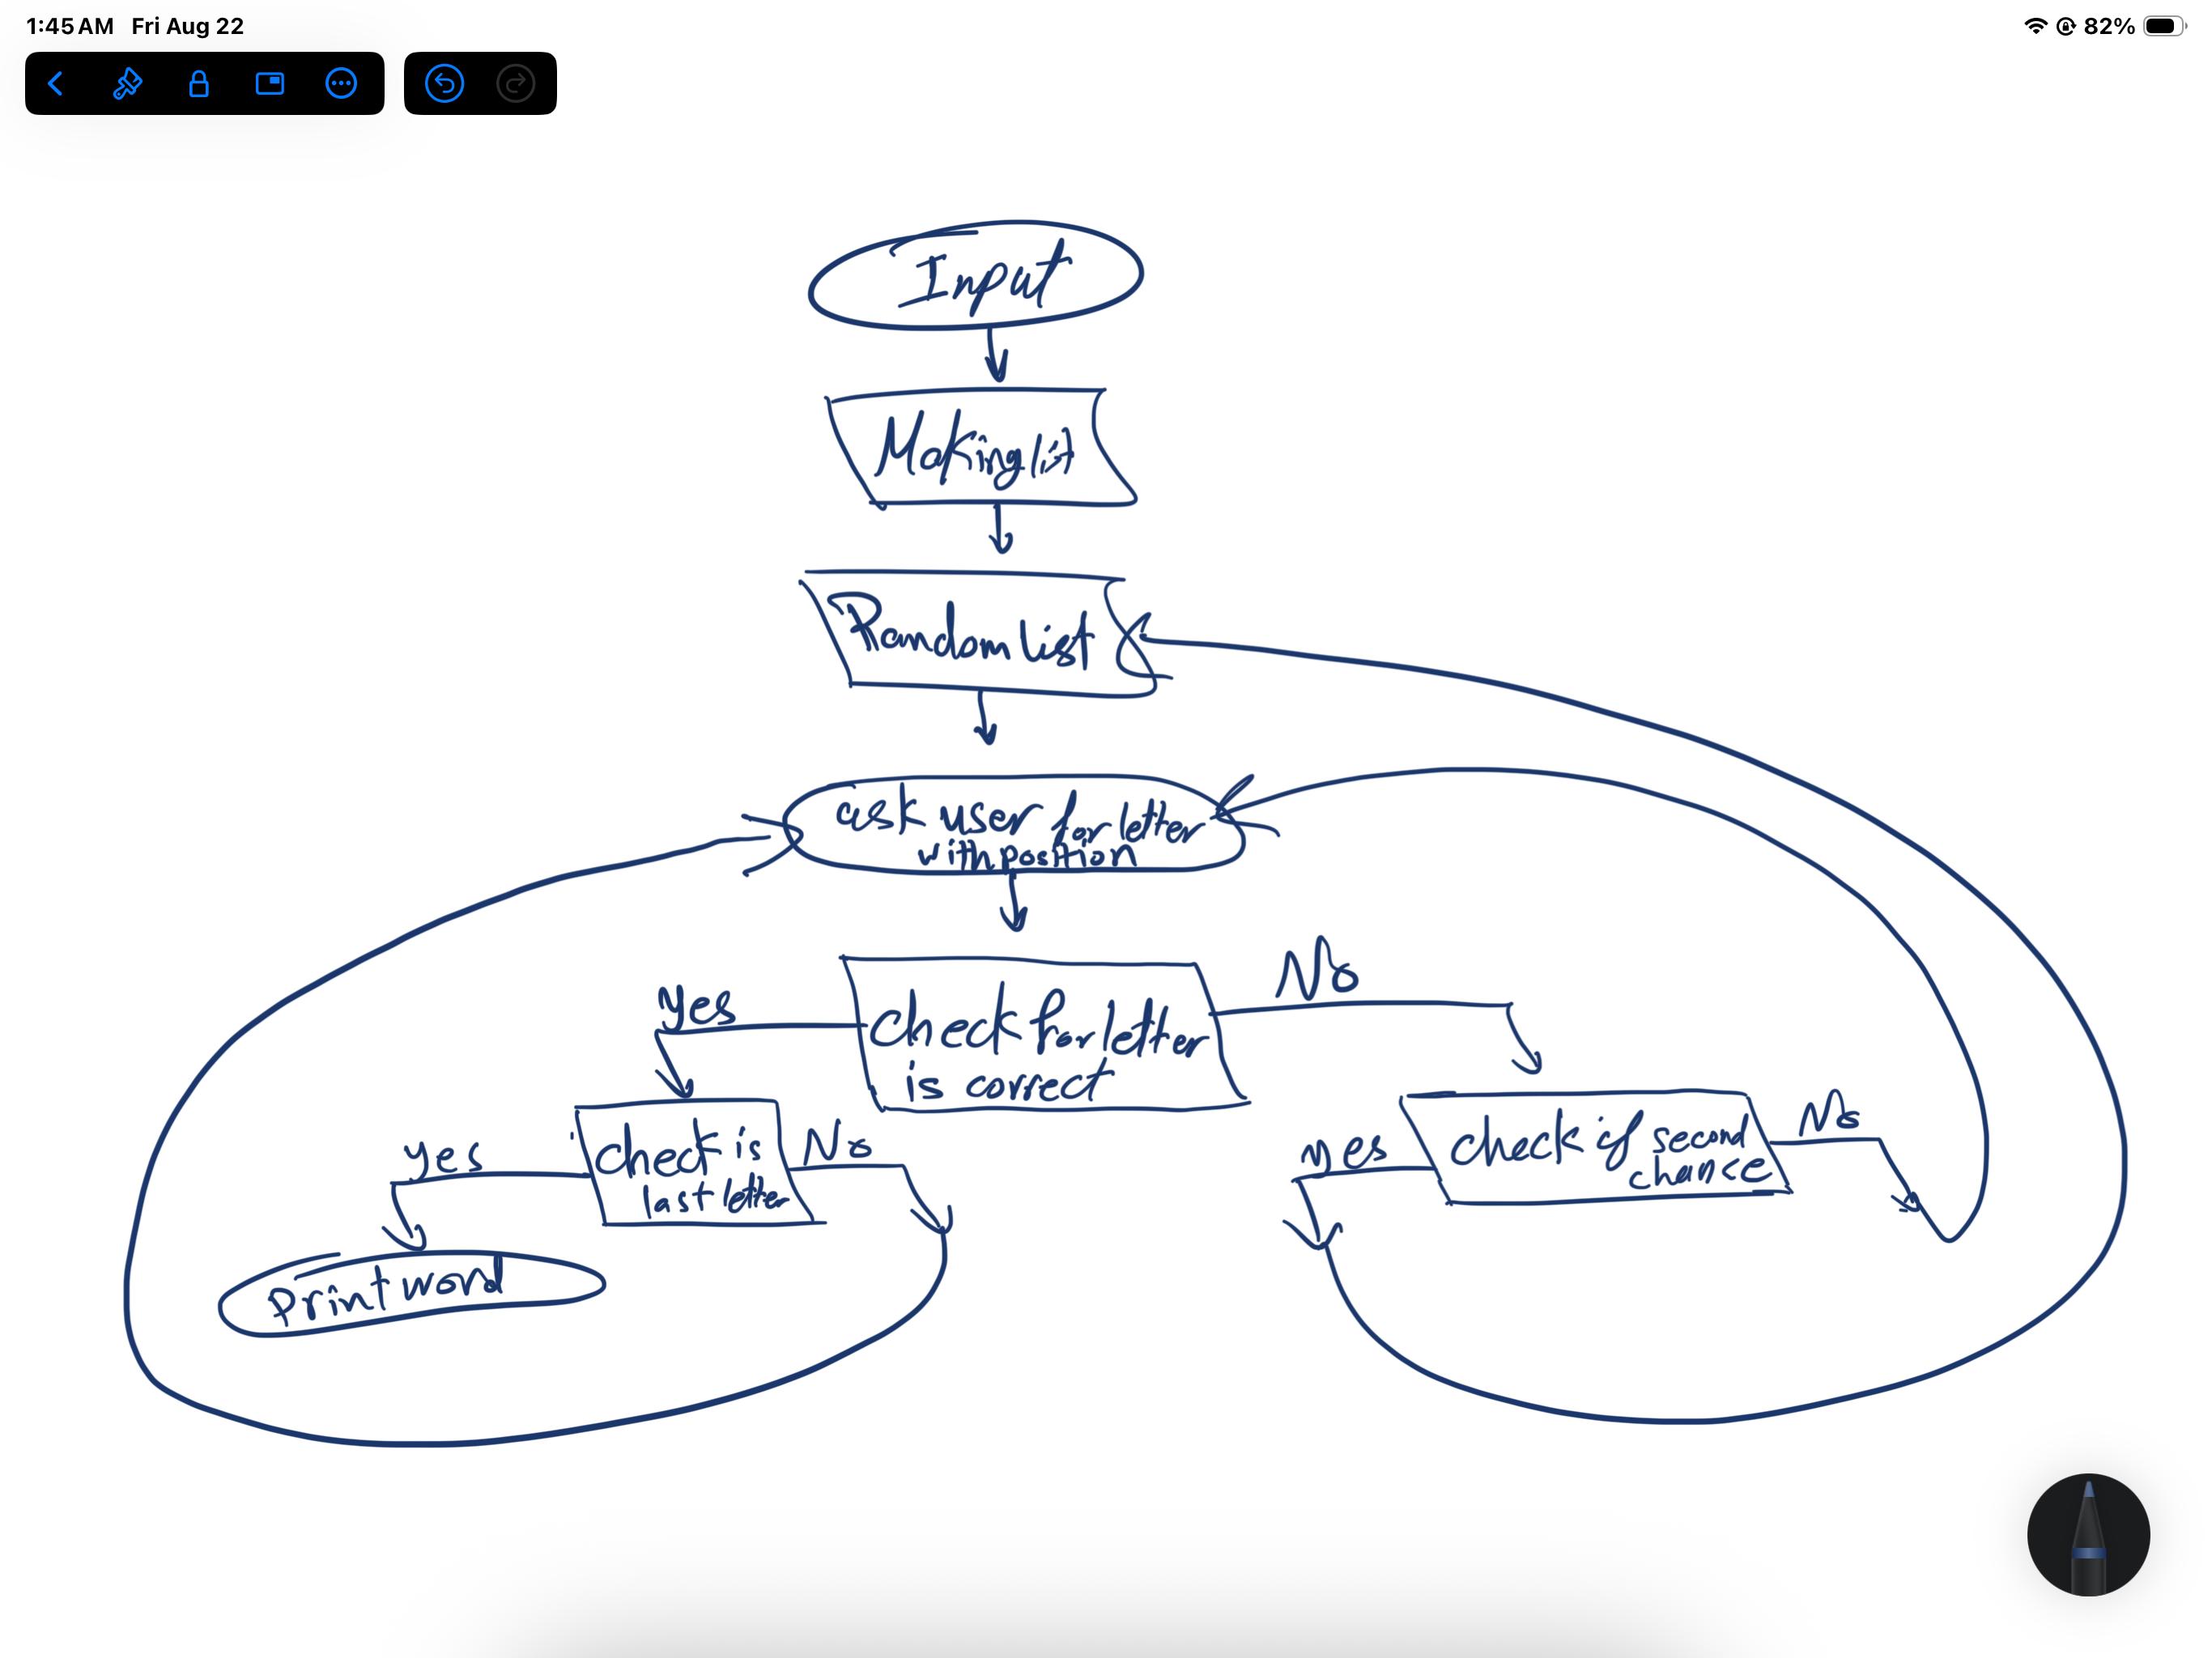 1:45 AM Fri Aug 22
82%
Input
Making list
Random list
ask user for letter
with position
Yes
No
check for letter
is correct
yes
check is
last letter
No
yes
check if second
chance
No
Print word